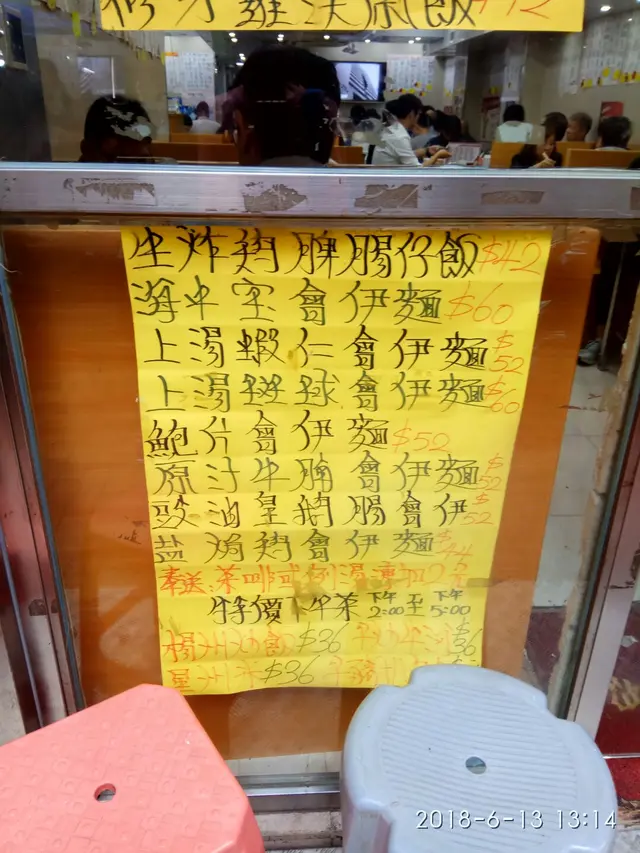 飯$42
生炸鸡脾腸仔飯$42
海中宝會伊麵$60
上湯蝦仁會伊麵$52
上湯球會伊麵$60
鮑片會伊麵$52
原汁牛腩會伊麵$52
豉油皇鹅腸會伊$52
盐焗鸡會伊麵$44
奉送茶啡或例湯凍加2元
特價下午茶下午2:00至下午5:00
楊州炒飯$36 $36
星州米$36
2018-6-13 13:14